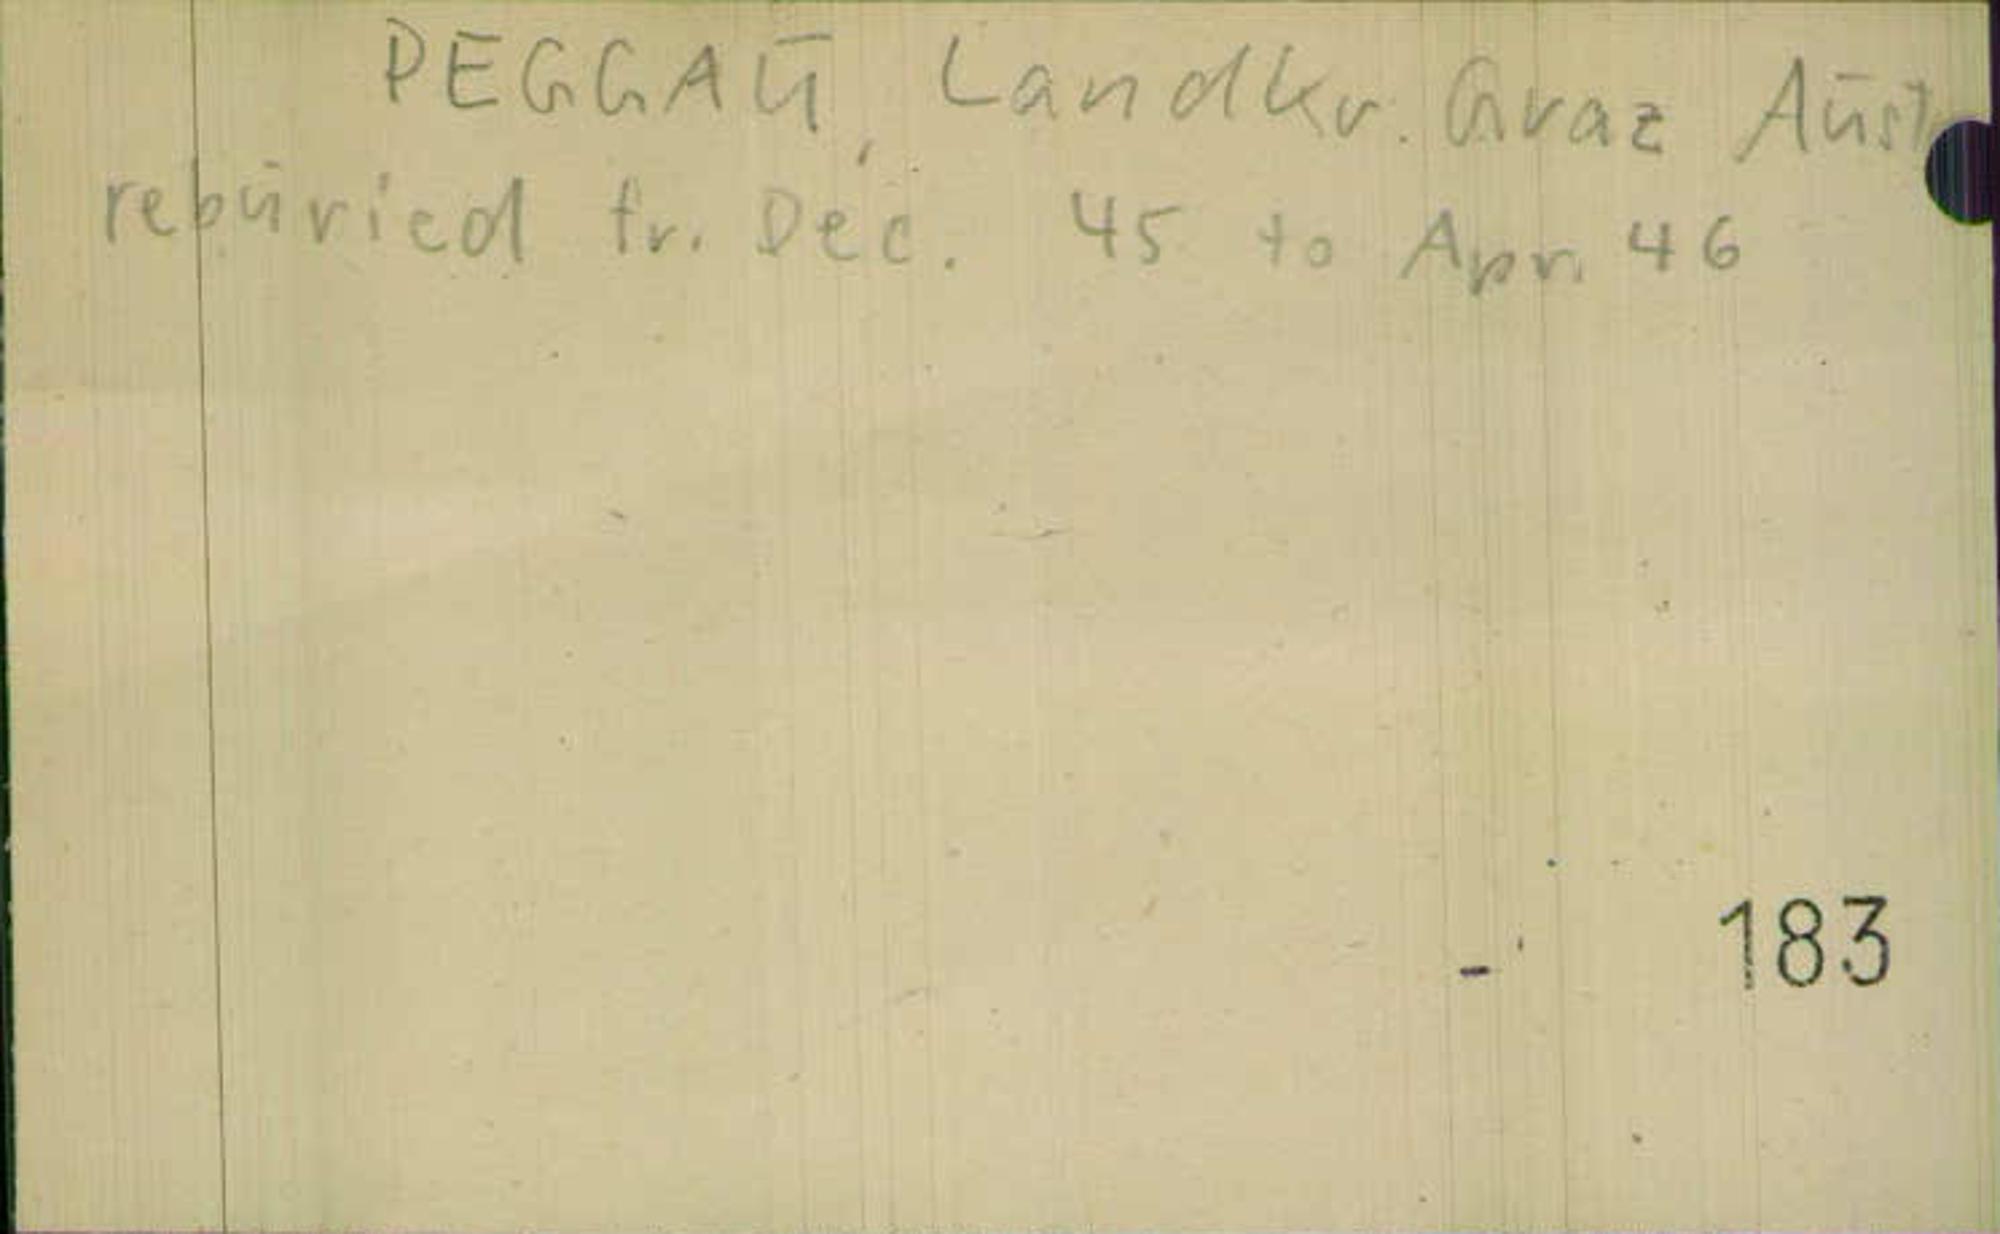 PEGGAU, Landkr. Graz Aust
reburied fr. Dec. 45 to Apr. 46
183